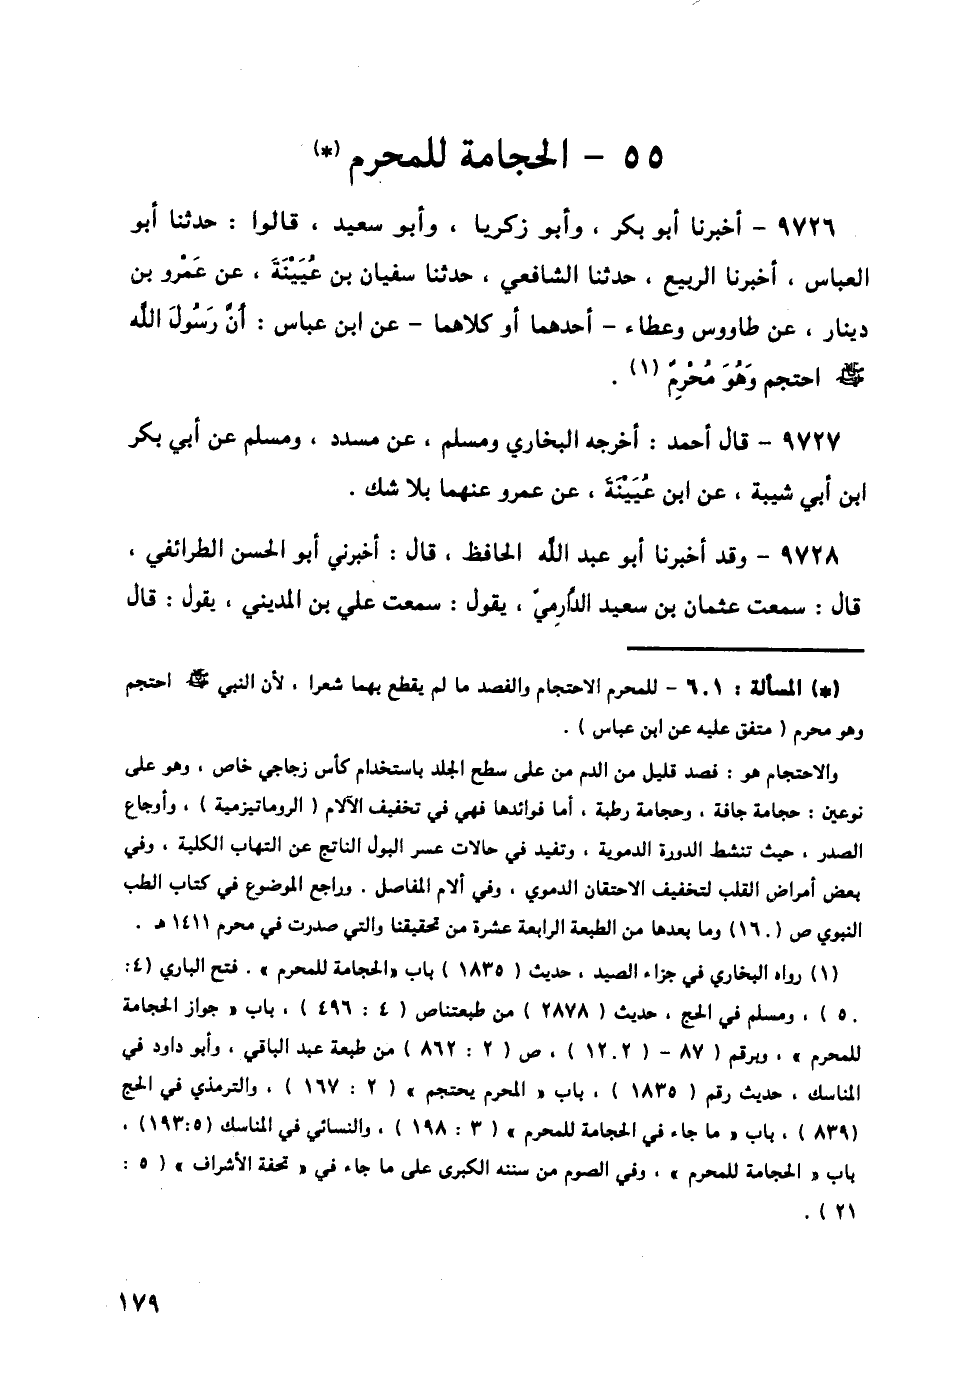 ٥٥ – الحجامة للمحرم (*)
٩٧٢٦ – أخبرنا أبو بكر ، وأبو زكريا ، وأبو سعيد ، قالوا : حدثنا أبو
العباس ، أخبرنا الربيع ، حدثنا الشافعي ، حدثنا سفيان بن عُيَيْنَةَ ، عن عَمْرو بن
دينار ، عن طاووس وعطاء – أحدهما أو كلاهما – عن ابن عباس : أَنَّ رَسُولَ الله
ﷺ احتجم وَهُوَ مُحْرِمٌ (١) .
٩٧٢٧ – قال أحمد : أخرجه البخاري ومسلم ، عن مسدد ، ومسلم عن أبي بكر
ابن أبي شيبة ، عن ابن عُيَيْنَةَ ، عن عمرو عنهما بلا شك .
٩٧٢٨ – وقد أخبرنا أبو عبد الله الحافظ ، قال : أخبرني أبو الحسن الطرائفي ،
قال : سمعت عثمان بن سعيد الدَّارِميّ ، يقول : سمعت علي بن المديني ، يقول : قال
(*) المسألة : ٦٠١ – للمحرم الاحتجام والفصد ما لم يقطع بهما شعرا ، لأن النبي ﷺ احتجم
وهو محرم ( متفق عليه عن ابن عباس ) .
والاحتجام هو : فصد قليل من الدم من على سطح الجلد باستخدام كأس زجاجي خاص ، وهو على
نوعين : حجامة جافة ، وحجامة رطبة ، أما فوائدها فهي في تخفيف الآلام ( الروماتيزمية ) ، وأوجاع
الصدر ، حيث تنشط الدورة الدموية ، وتفيد في حالات عسر البول الناتج عن التهاب الكلية ، وفي
بعض أمراض القلب لتخفيف الاحتقان الدموي ، وفي ألام المفاصل . وراجع الموضوع في كتاب الطب
النبوي ص (١٦٠) وما بعدها من الطبعة الرابعة عشرة من تحقيقنا والتي صدرت في محرم ١٤١١ هـ .
(١) رواه البخاري في جزاء الصيد ، حديث ( ١٨٣٥ ) باب «الحجامة للمحرم » . فتح الباري (٤:
٥٠ ) ، ومسلم في الحج ، حديث ( ٢٨٧٨ ) من طبعتناص ( ٤ : ٤٩٦ ) ، باب « جواز الحجامة
للمحرم » ، وبرقم ( ٨٧ – ( ١٢٠٢ ) ، ص ( ٢ : ٨٦٢ ) من طبعة عبد الباقي ، وأبو داود في
المناسك ، حديث رقم ( ١٨٣٥ ) ، باب « المحرم يحتجم » ( ٢ : ١٦٧ ) ، والترمذي في الحج
(٨٣٩ ) ، باب « ما جاء في الحجامة للمحرم » ( ٣ : ١٩٨ ) ، والنسائي في المناسك (١٩٣:٥) ،
باب « الحجامة للمحرم » ، وفي الصوم من سننه الكبرى على ما جاء في « تحفة الأشراف » ( ٥ :
٢١ ) .
١٧٩